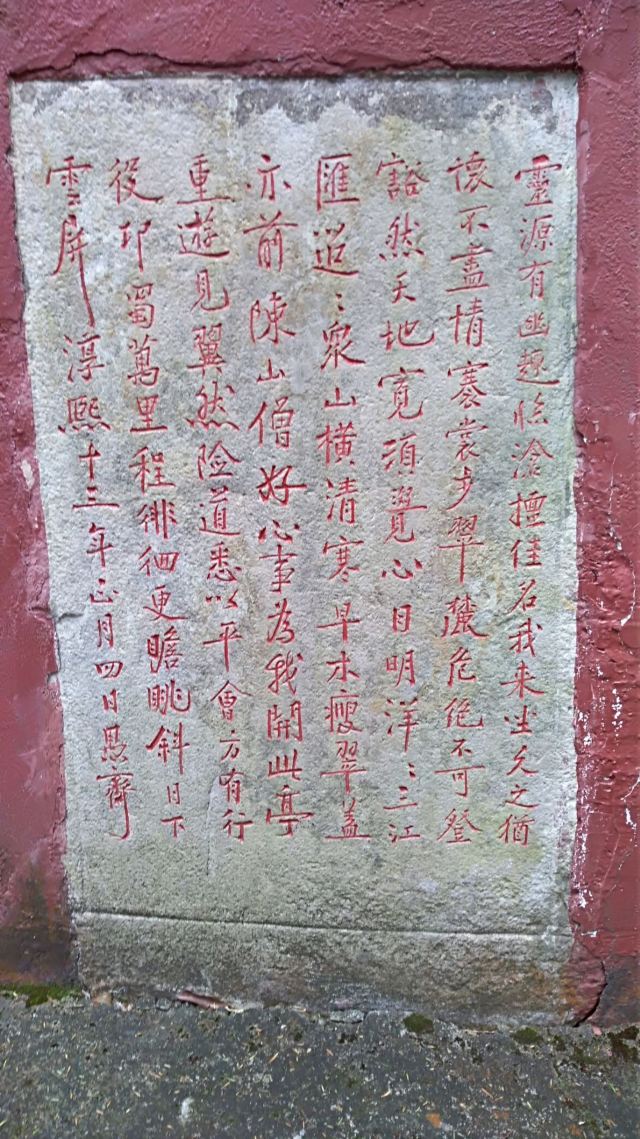 靈源有幽趣臨滄擅佳名我来坐久之猶
懷不盡情褰裳步翠麓危绝不可登
豁然天地寬須覺心目明洋〻三江
匯迢〻衆山横清寒早木瘦翠蓋
亦前陳山僧好心事為我開此亭
重遊見翼然险道悉以平會方有行
役邛蜀萬里程徘徊更瞻眺斜日下
雲屏 淳熙十三年正月四日愚齋